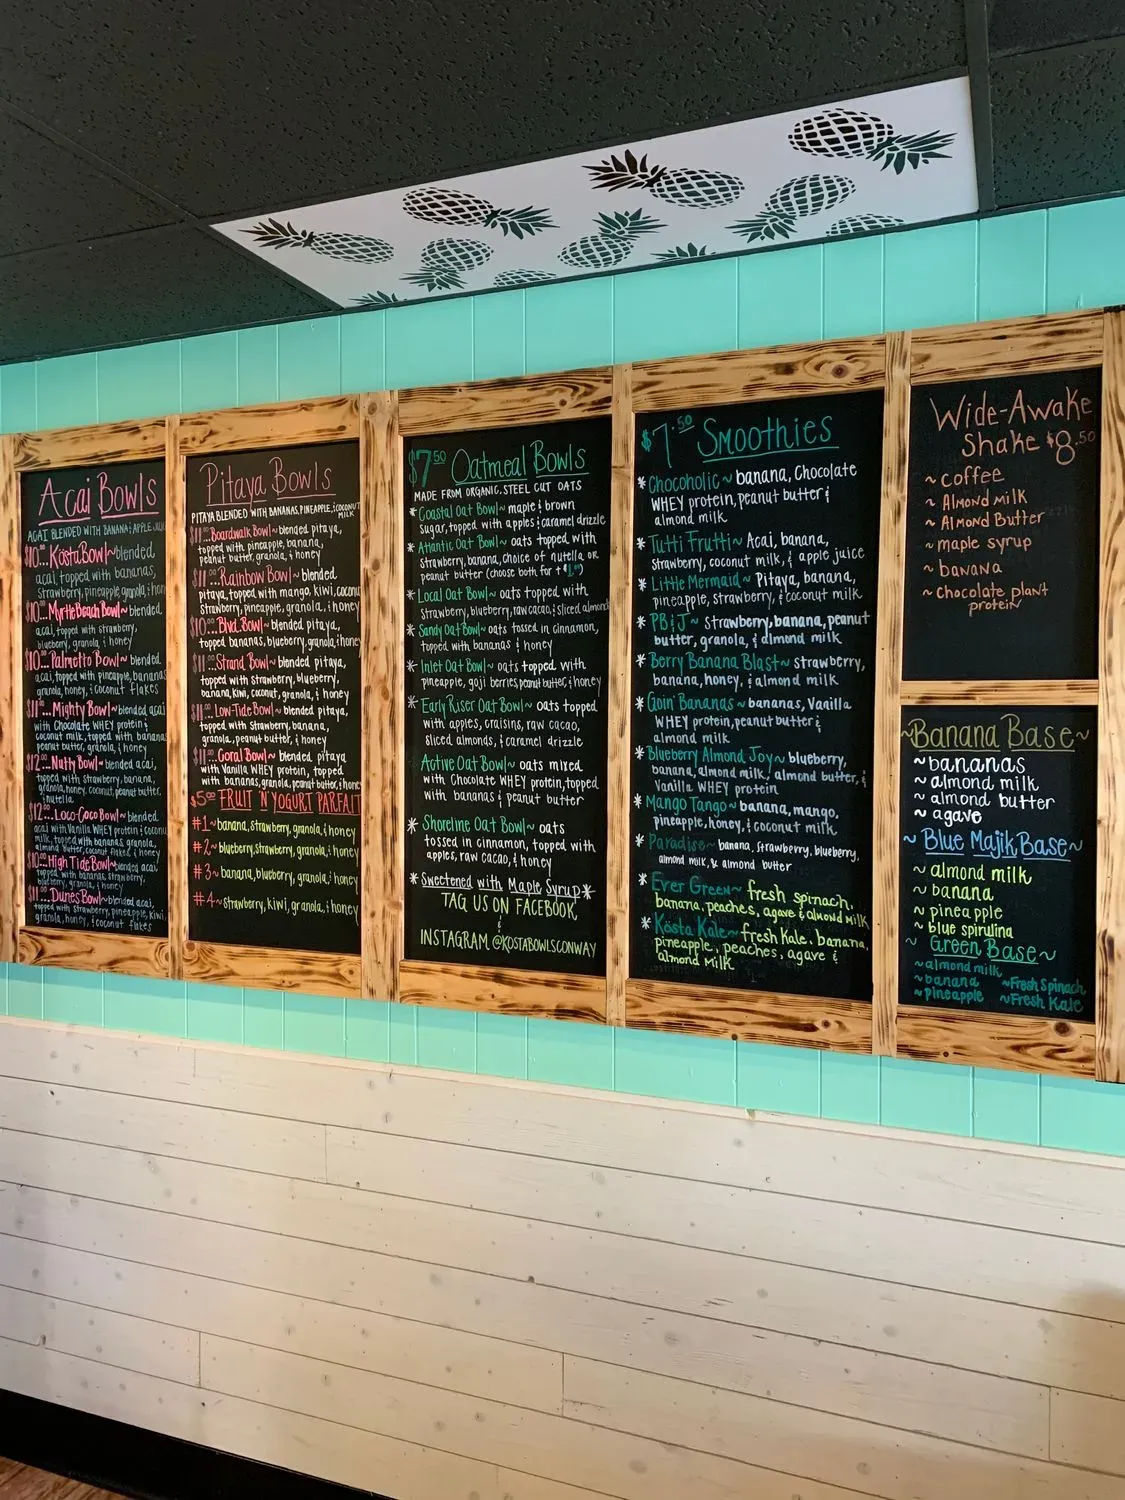 Acai Bowls
ACAI BLENDED WITH BANANA & APPLE JUICE
$10.00...Kosta Bowl~blended
acai, topped with bananas,
strawberry, pineapple, granola, & honey
$10.00...Myrtle Beach Bowl~blended
acai, topped with strawberry,
blueberry, granola, & honey
$10.00...Palmetto Bowl~blended
acai, topped with pineapple, bananas
granola, honey, & coconut flakes
$11.00...Mighty Bowl~blended acai
with Chocolate WHEY protein &
coconut milk, topped with banana
peanut butter, granola, & honey
$12.00...Nutty Bowl~blended acai,
topped with strawberry, banana,
granola, honey, coconut, peanut butter,
& nutella
$12.00...Loco-Coco Bowl~blended
acai with Vanilla WHEY protein & coconut
milk, topped with bananas, granola,
almond butter, coconut flakes, & honey
$10.00...High Tide Bowl~blended acai,
topped with bananas, strawberry,
blueberry, granola, & honey
$11.00...Dunes Bowl~blended acai,
topped with strawberry, pineapple, kiwi,
granola, honey, & coconut flakes
Pitaya Bowls
PITAYA BLENDED WITH BANANAS, PINEAPPLE, & COCONUT
MILK
$11.00...Boardwalk Bowl~blended pitaya,
topped with pineapple, banana,
peanut butter, granola, & honey
$11.00...Rainbow Bowl~blended
pitaya, topped with mango, kiwi, coconut
strawberry, pineapple, granola, & honey
$10.00...Blvd. Bowl~blended pitaya,
topped bananas, blueberry, granola, & honey
$11.00...Strand Bowl~blended pitaya,
topped with strawberry, blueberry,
banana, kiwi, coconut, granola, & honey
$11.00...Low-Tide Bowl~blended pitaya,
topped with strawberry, banana,
granola, peanut butter, & honey
$11.00...Coral Bowl~blended pitaya
with Vanilla WHEY protein, topped
with bananas, granola, peanut butter, & honey
$5.00 FRUIT 'N' YOGURT PARFAIT
#1~banana, strawberry, granola, & honey
#2~blueberry, strawberry, granola, & honey
#3~banana, blueberry, granola, & honey
#4~strawberry, kiwi, granola, & honey
$7.50 Oatmeal Bowls
MADE FROM ORGANIC, STEEL CUT OATS
*Coastal Oat Bowl~ maple & brown
sugar, topped with apples & caramel drizzle
*Atlantic Oat Bowl~ oats topped with
strawberry, banana, choice of nutella OR
peanut butter (choose both for + $1.00)
*Local Oat Bowl~ oats topped with
strawberry, blueberry, raw cacao, & sliced almonds
*Sandy Oat Bowl~ oats tossed in cinnamon,
topped with bananas & honey
*Inlet Oat Bowl~ oats topped with
pineapple, goji berries, peanut butter, & honey
*Early Riser Oat Bowl~ oats topped
with apples, craisins, raw cacao,
sliced almonds, & caramel drizzle
Active Oat Bowl~ oats mixed
with Chocolate WHEY protein, topped
with bananas & peanut butter
*Shoreline Oat Bowl~ oats
tossed in cinnamon, topped with
apples, raw cacao, & honey
*Sweetened with Maple Syrup*
TAG US ON FACEBOOK
&
INSTAGRAM @KOSTABOWLSCONWAY
$7.50 Smoothies
*Chocoholic~ banana, Chocolate
WHEY protein, peanut butter &
almond milk
*Tutti Frutti~ Acai, banana,
strawberry, coconut milk, & apple juice
*Little Mermaid~ Pitaya, banana,
pineapple, strawberry, & coconut milk
*PB&J~ strawberry, banana, peanut
butter, granola, & almond milk
*Berry Banana Blast~ strawberry,
banana, honey, & almond milk
*Goin' Bananas~ bananas, Vanilla
WHEY protein, peanut butter &
almond milk
*Blueberry Almond Joy~ blueberry,
banana, almond milk, almond butter, &
Vanilla WHEY protein
*Mango Tango~ banana, mango,
pineapple, honey, & coconut milk
*Paradise~ banana, strawberry, blueberry,
almond milk, & almond butter
*Ever Green~ fresh spinach,
banana, peaches, agave & almond milk
*Kosta Kale~ fresh Kale, banana,
pineapple, peaches, agave &
almond milk
Wide-Awake
Shake $8.50
~ coffee
~ Almond milk
~ Almond Butter
~ maple syrup
~ banana
~ Chocolate plant
protein
~Banana Base~
~bananas
~almond milk
~almond butter
~agave
~Blue Majik Base~
~almond milk
~banana
~pineapple
~blue spirulina
~Green Base~
~almond milk
~banana ~Fresh Spinach
~pineapple ~Fresh Kale